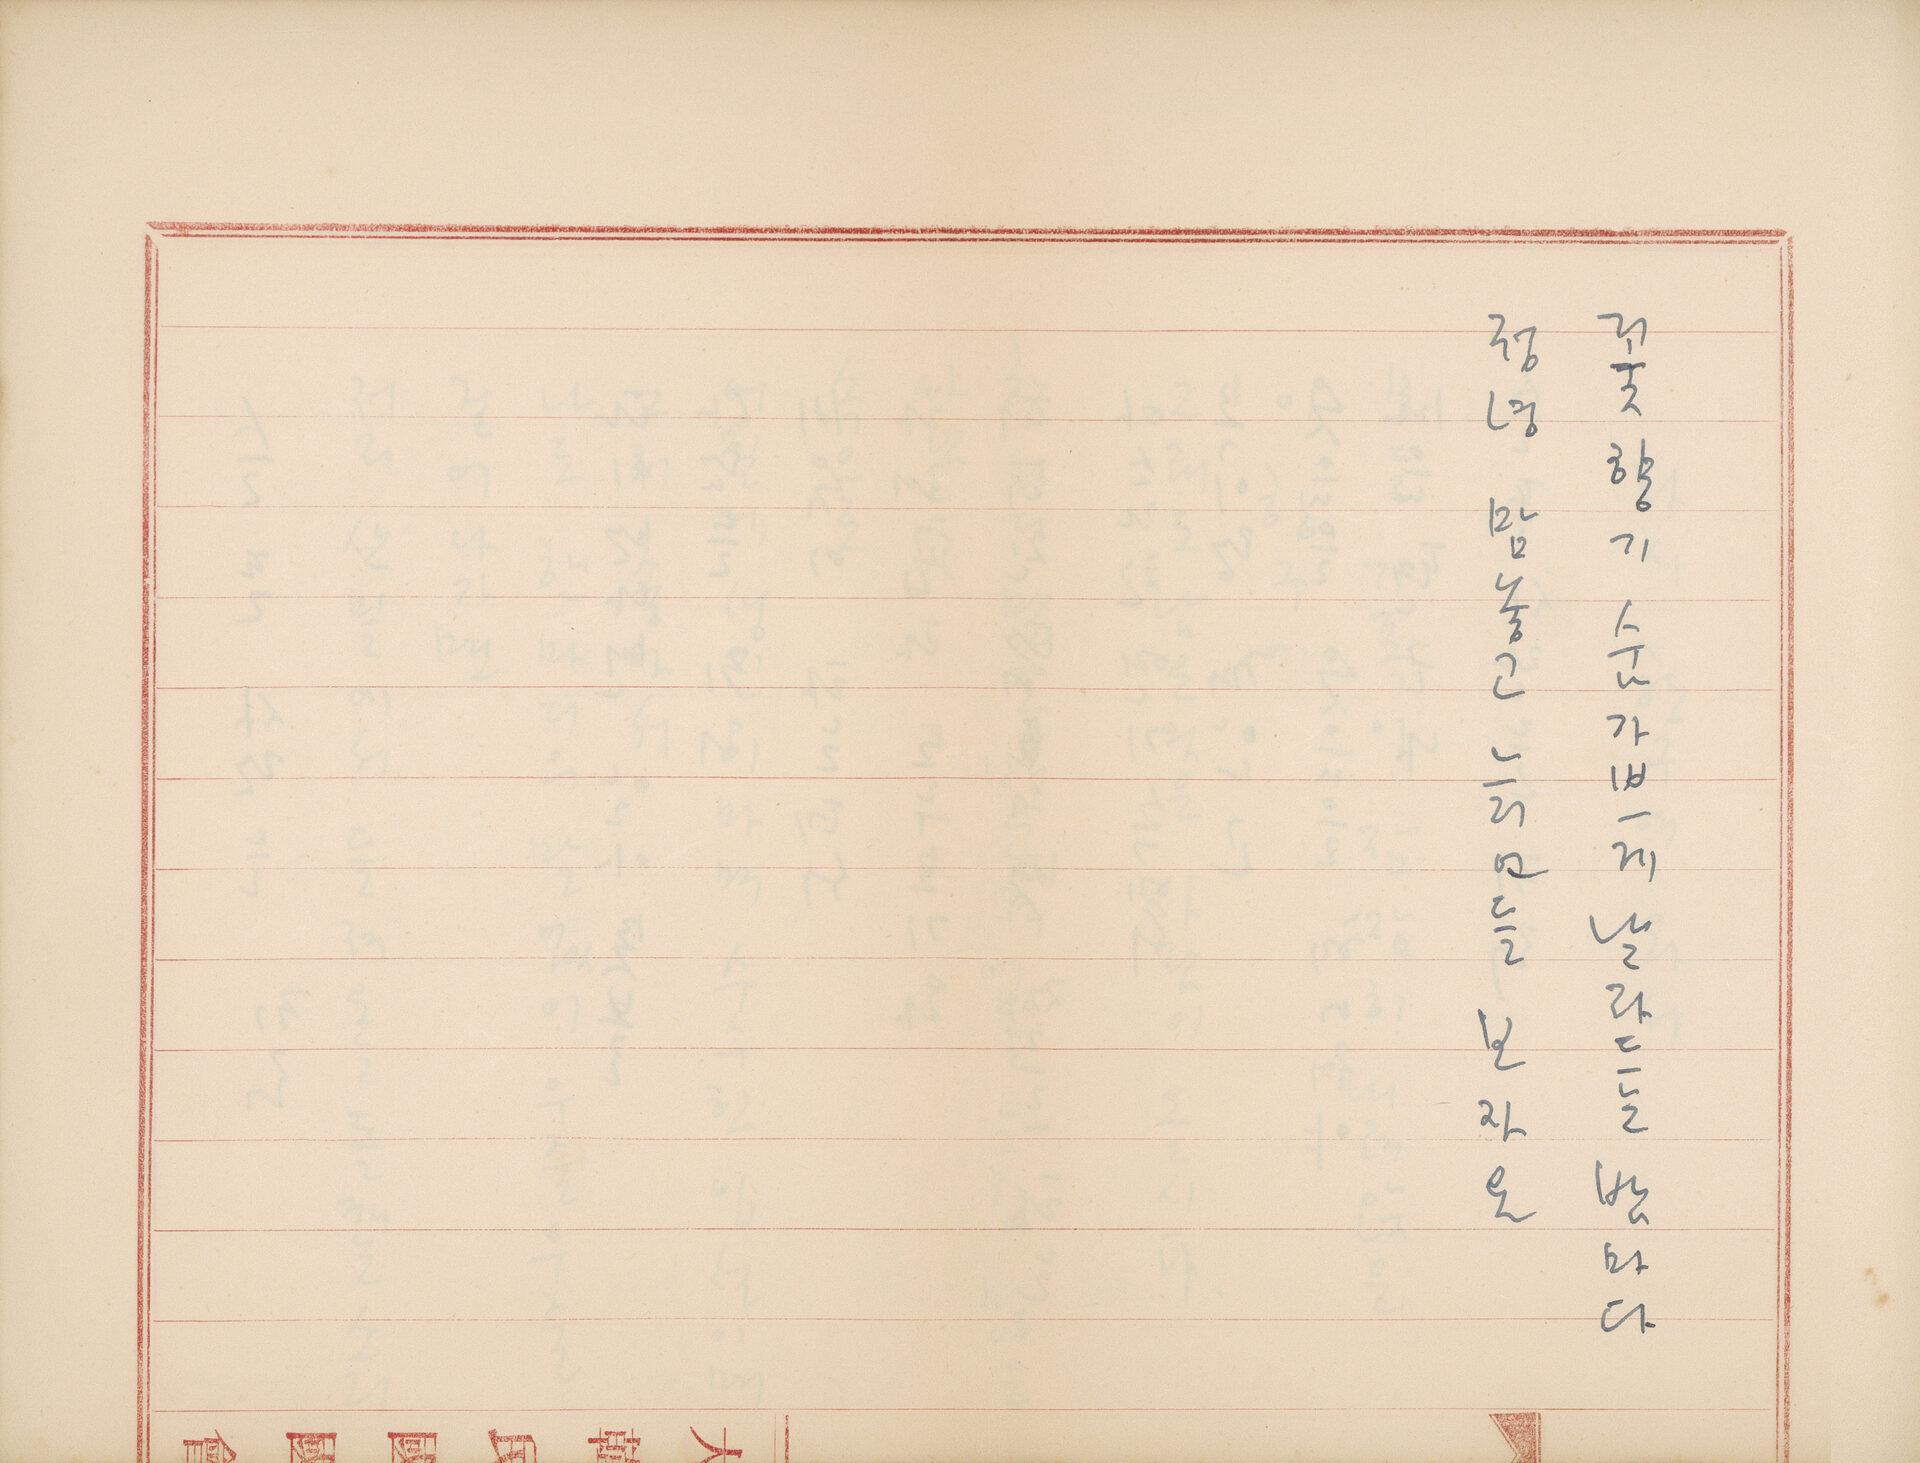 꽃 향기 숨가쁘게 날라드는 밤마다
정녕 맘놓고 늙언들 보자요
大韓民國國會